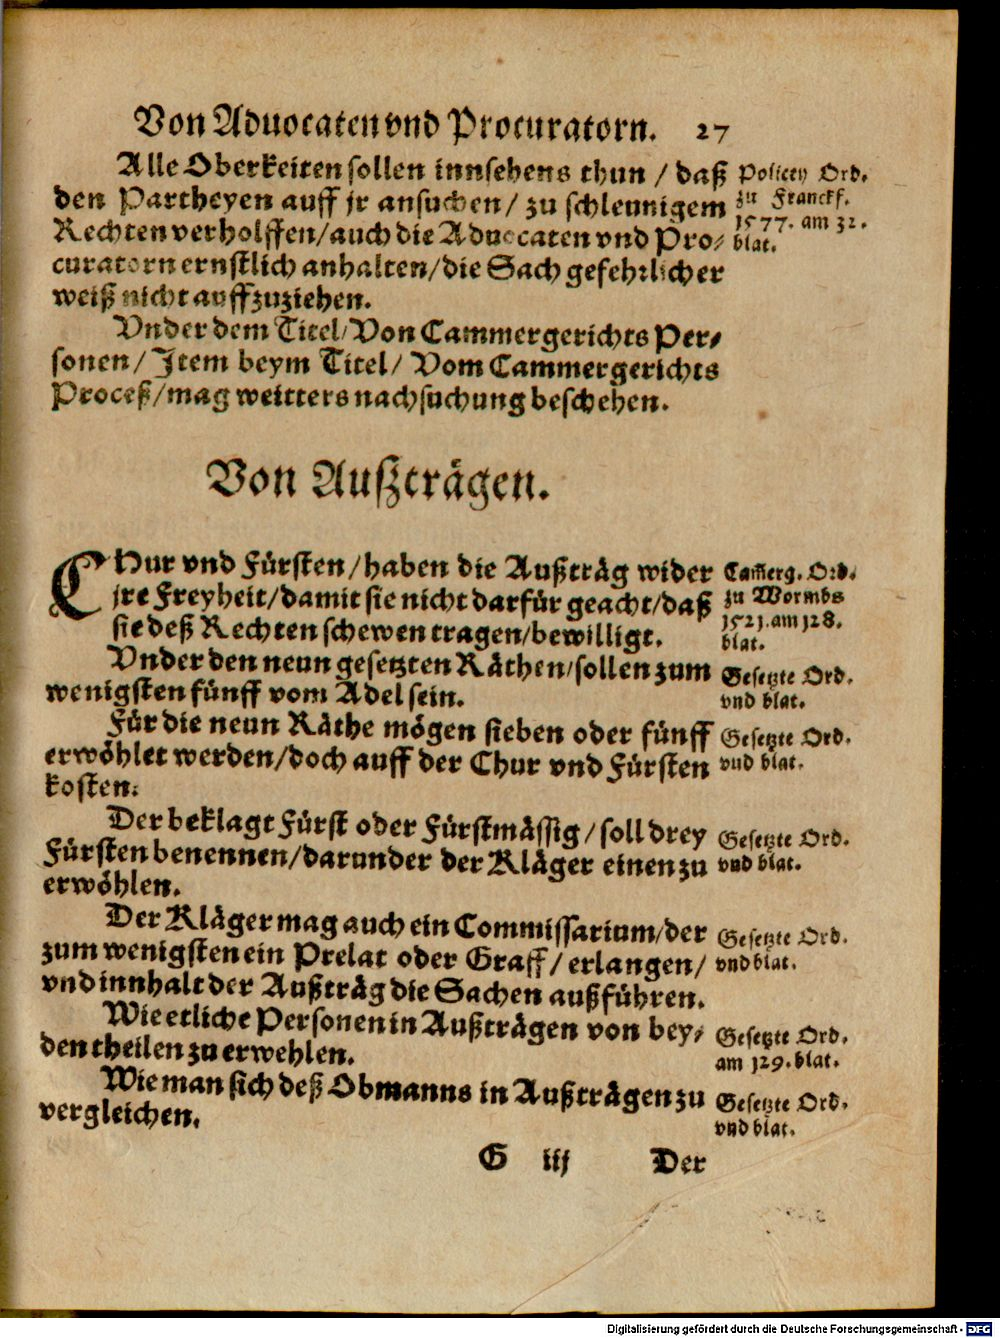 Von Aduocaten vnd Procuratorn. 27
Alle Oberkeiten sollen innsehens thun / daß
den Partheyen auff jr ansuchen / zu schleunigem
Rechten verholffen/auch die Aduocaten vnd Pro-
curatorn ernstlich anhalten/die Sach gefehrlicher
weiß nicht auffzuziehen.
Policey Ord.
zu Franckf.
1577. am 32.
blat.
Vnder dem Titel/Von Cammergerichts Per-
sonen/ Item beym Titel/ Vom Cammergerichts
Proceß/mag weitters nachsuchung beschehen.
Von Außträgen.
CHur vnd Fürsten/haben die Außträg wider
jre Freyheit/damit sie nicht darfür geacht/daß
sie deß Rechten schewen tragen/bewilligt.
Cam̃erg. Ord.
zu Wormbs
1521. am 128.
blat.
Vnder den neun gesetzten Räthen/sollen zum
wenigsten fünff vom Adel sein.
Gesetzte Ord.
vnd blat.
Für die neun Räthe mögen sieben oder fünff
erwöhlet werden/doch auff der Chur vnd Fürsten
kosten.
Gesetzte Ord.
vnd blat.
Der beklagt Fürst oder Fürstmässig/soll drey
Fürsten benennen/darunder der Kläger einen zu
erwöhlen.
Gesetzte Ord.
vnd blat.
Der Kläger mag auch ein Commissarium/der
zum wenigsten ein Prelat oder Graff/erlangen/
vnd innhalt der Außträg die Sachen außführen.
Gesetzte Ord.
vnd blat.
Wie etliche Personen in Außträgen von bey-
den theilen zu erwehlen.
Gesetzte Ord.
am 129. blat.
Wie man sich deß Obmanns in Außträgen zu
vergleichen.
Gesetzte Ord.
vnd blat.
G iij Der
Digitalisierung gefördert durch die Deutsche Forschungsgemeinschaft - DFG